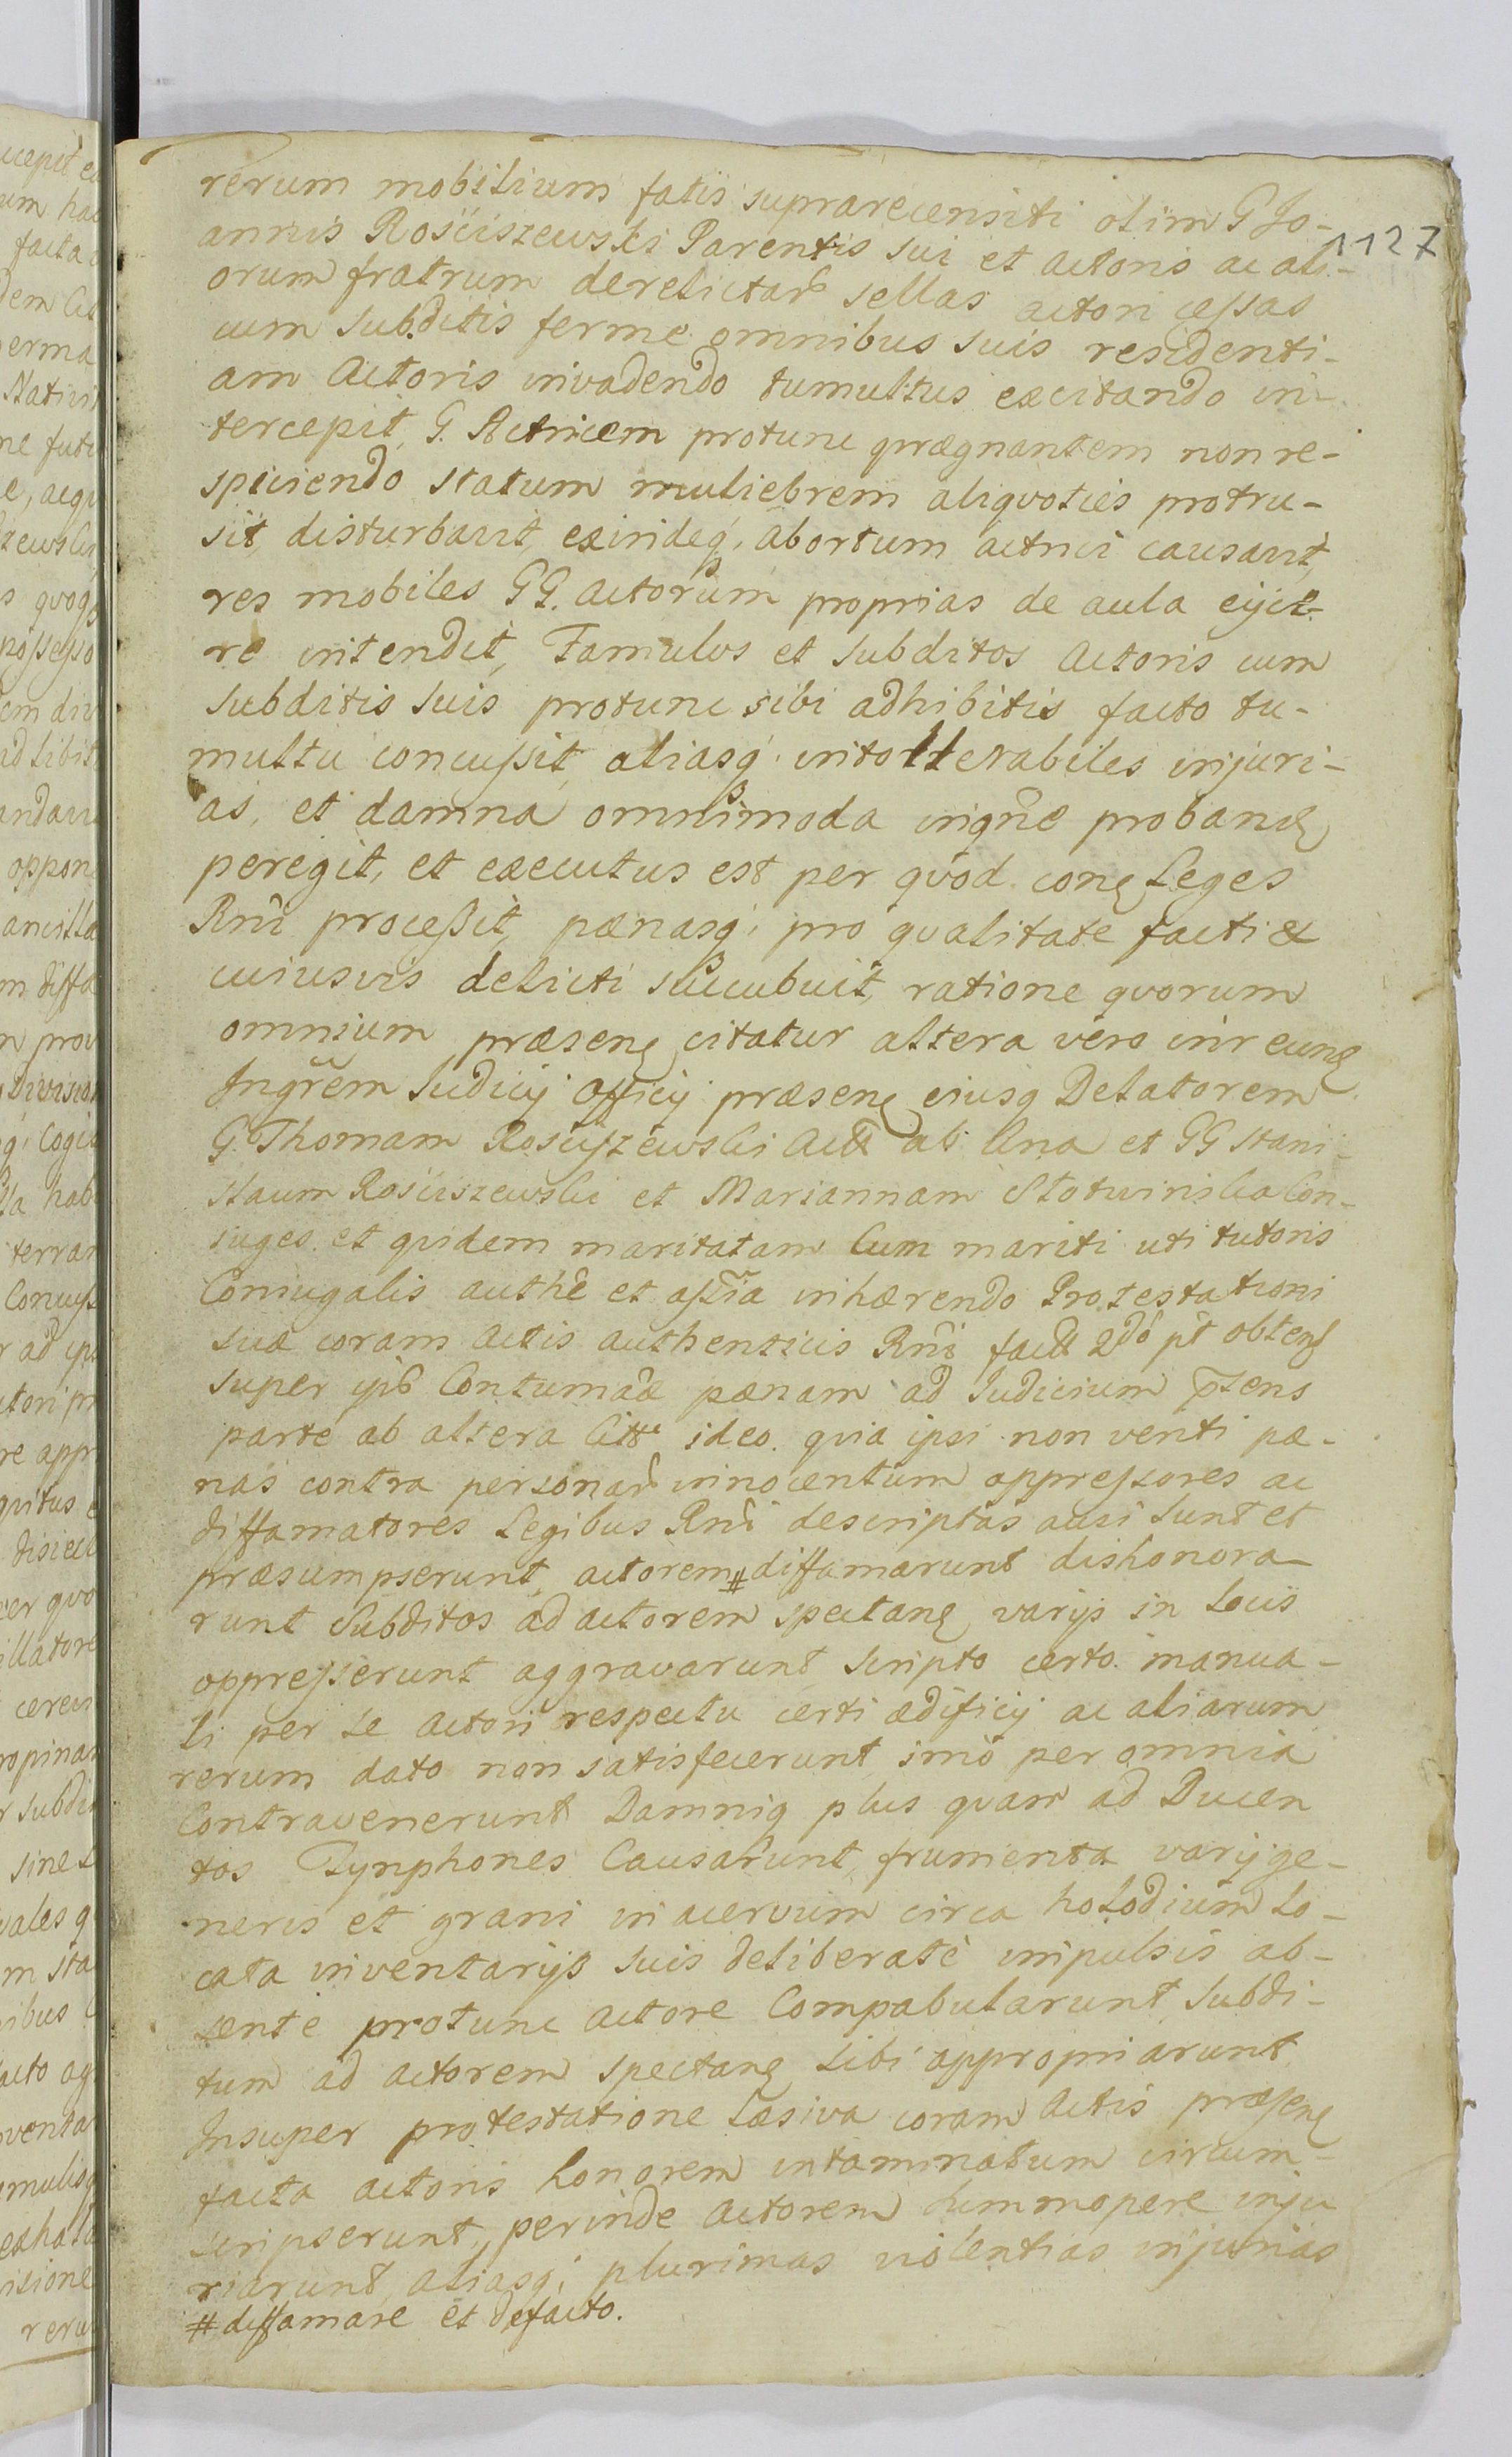 rerum mobilium fatis suprarecensiti olim G Jo-
annis Rosciszewski Parentis sui et actoris ac ali-
1127
orum fratrum derelictar sellas actori cessas
cum subditis ferme omnibus suis residenti-
am Actoris invadendo tumultus excitando in-
tercepit, G. Actricem protunc prægnantem non re-
spiciendo statum muliebrem aliqvoties protru-
sit, disturbavit, exindeq, abortum actrici causavit,
res mobiles GG. actorum proprias de aula ejice-
re intendit, Famulos et subditos Actoris cum
subditis suis protunc sibi adhibitis facto tu-
multu concussit, aliasq. intollerabiles injuri-
as, et damna omnimoda inqne proband
peregit, et executus est per qvod con Leges
Rni processit, pænasq, pro qvalitate facti et
cuiusvis delicti succubuit, ratione qvorum
omnium præsen citatur altera vero inreun
Jngrem Judicij Officij præsen eiusq Delatorem
G. Thomam Rosciszewski Act ab Una et GG Stani-
slaum Rosciszewski et Mariannam Slotwinska Con-
juges et qvidem maritatam Cum mariti uti tutoris
Coniugalis authe et assia inhærendo Protestationi
suæ coram Actis authenticis Rni fact 2do pt obten
super ipś Contumaciæ pænam ad Judicium ptens
parte ab altera Citt ideo qvia ipsi non venti pæ-
nas contra personar innocentum oppressores ac
diffamatores Legibus Rni descriptas ausi sunt et
præsumpserunt, actorem # diffamarunt dishonora-
runt Subditos ad actorem spectan varijs in Locis
oppresserunt aggravarunt scripto certo manua-
li per se Actori respectu certi ædificij ac aliarum
rerum dato non satisfecerunt, imo per omnia
Contravenerunt Damniq plus qvam ad Ducen
tos Zynphones Causarunt, frumenta varij ge-
neris et grani in acervum circa holodium Lo-
cata inventarijs suis deliberatè impulsis ab-
sente protunc Actore Compabularunt, Subdi-
tum ad actorem spectan sibi appropriarunt
Insuper protestatione Læsiva coram Actis præsen
facta actoris honorem intaminatum circum-
scripserunt, perinde Actorem summopere inju
riarunt, aliasq, plurimas violentias injurias
# diffamare et defacto.